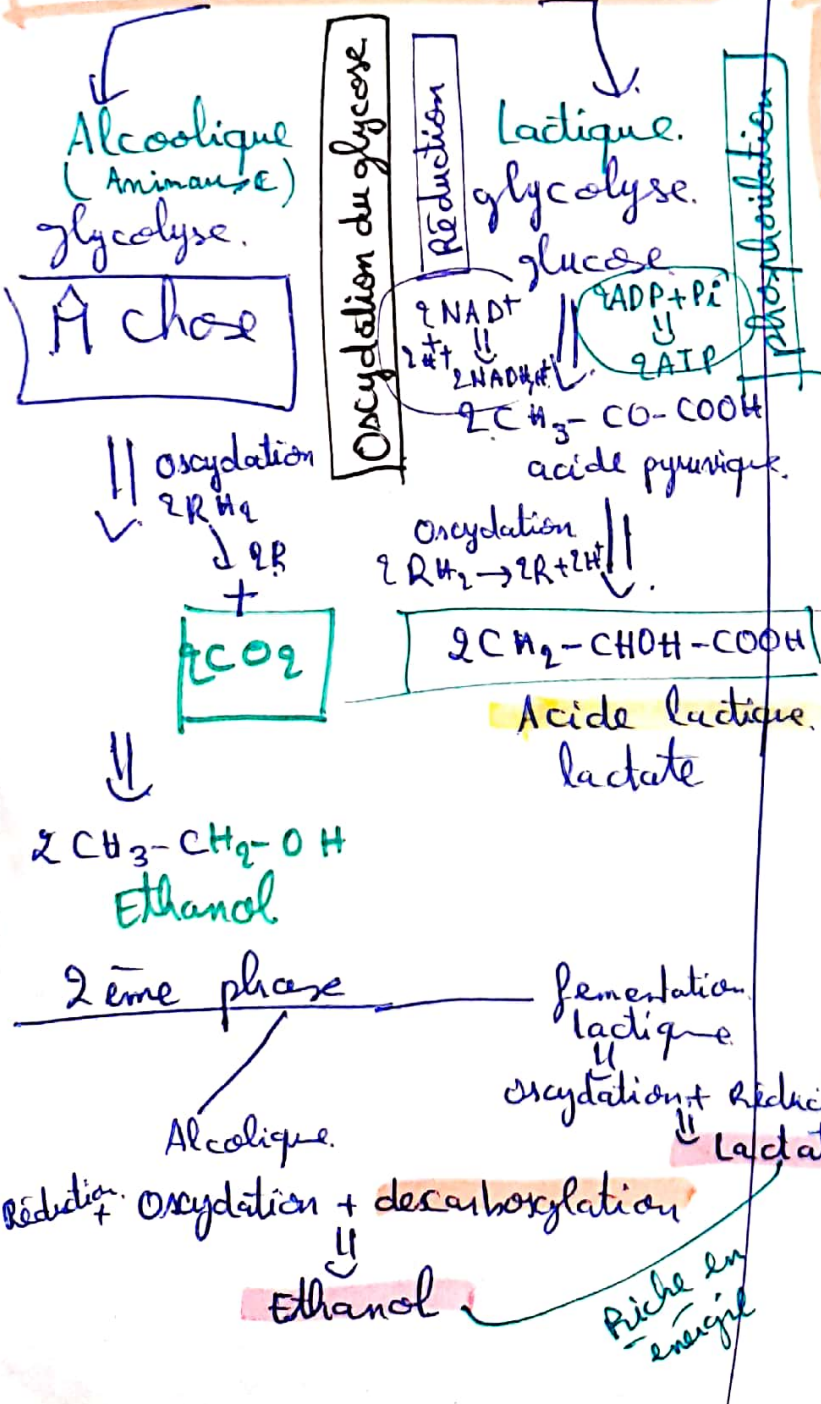 Alcoolique
(Animaux)
glycolyse.
M̂ chose
oxydation
2RH2
↓ 2R
+
2CO2
⇓
2CH3-CH2-OH
Ethanol
Oxydation du glycose
Réduction
Lactique.
glycolyse.
glucose
2NAD+
2H+
⇓
2NADH,H+
2ADP+Pi
⇓
2ATP
phosphorilation
2CH3-CO-COOH
acide pyruvique.
Oxydation
2RH2→2R+2H+
2CH2-CHOH-COOH
Acide lactique.
lactate
2ème phase
fementation
lactique
⇓
oxydation + Réduc
⇓
Lactat
Alcolique.
Réduction + Oxydation + decarboxylation
⇓
Ethanol
Riche en
énergie